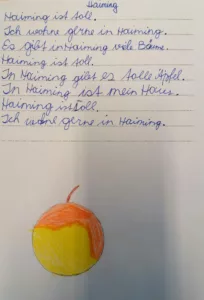 Haiming
Haiming ist toll.
Ich wohne gerne in Haiming.
Es gibt in Haiming viele Bäume.
Haiming ist toll.
In Haiming gibt es tolle Äpfel.
In Haiming ist mein Haus.
Haiming ist toll.
Ich wohne gerne in Haiming.